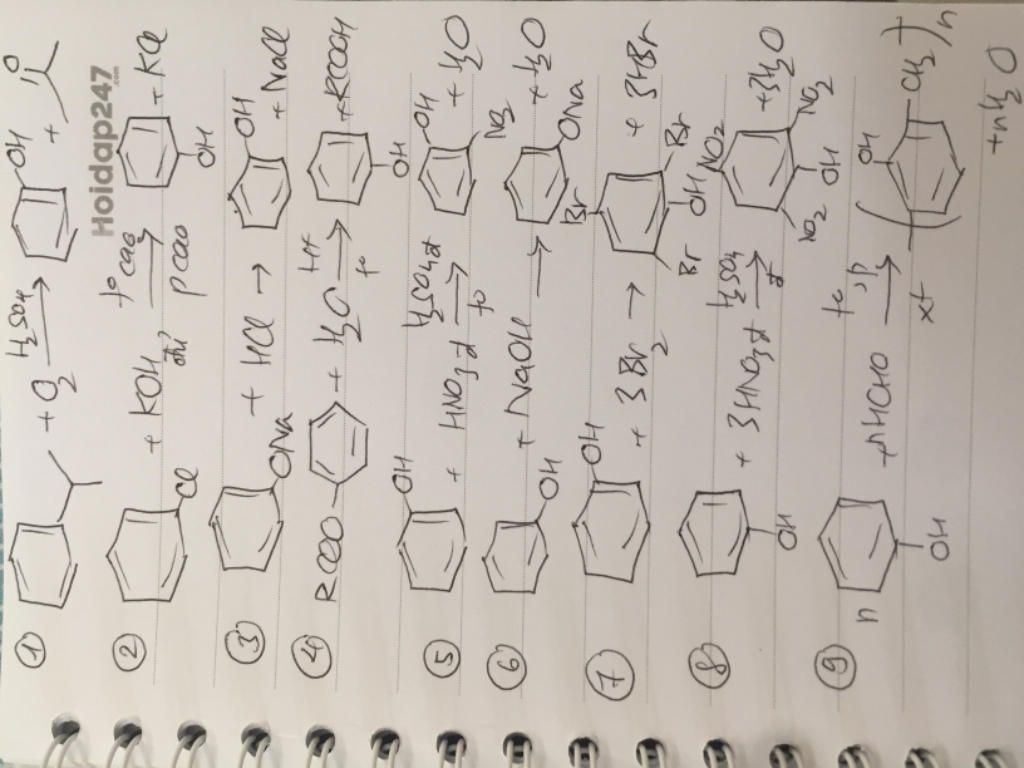 ① + O₂ H₂SO₄ → OH + O
② Cl + KOH đặc t° cao → p cao OH + KCl
③ ONa + HCl → OH + NaCl
④ RCOO + H₂O H⁺ → t° OH + RCOOH
⑤ OH + HNO₃ đ H₂SO₄ đ → t° OH NO₂ + H₂O
⑥ OH + NaOH → ONa + H₂O
⑦ OH + 3Br₂ → Br Br OH Br + 3HBr
⑧ OH + 3HNO₃ đ H₂SO₄ đ → NO₂ NO₂ OH NO₂ + 3H₂O
⑨ n OH + nHCHO t°, p → xt ( OH CH₂ )n
+ nH₂O
Hoidap247.com